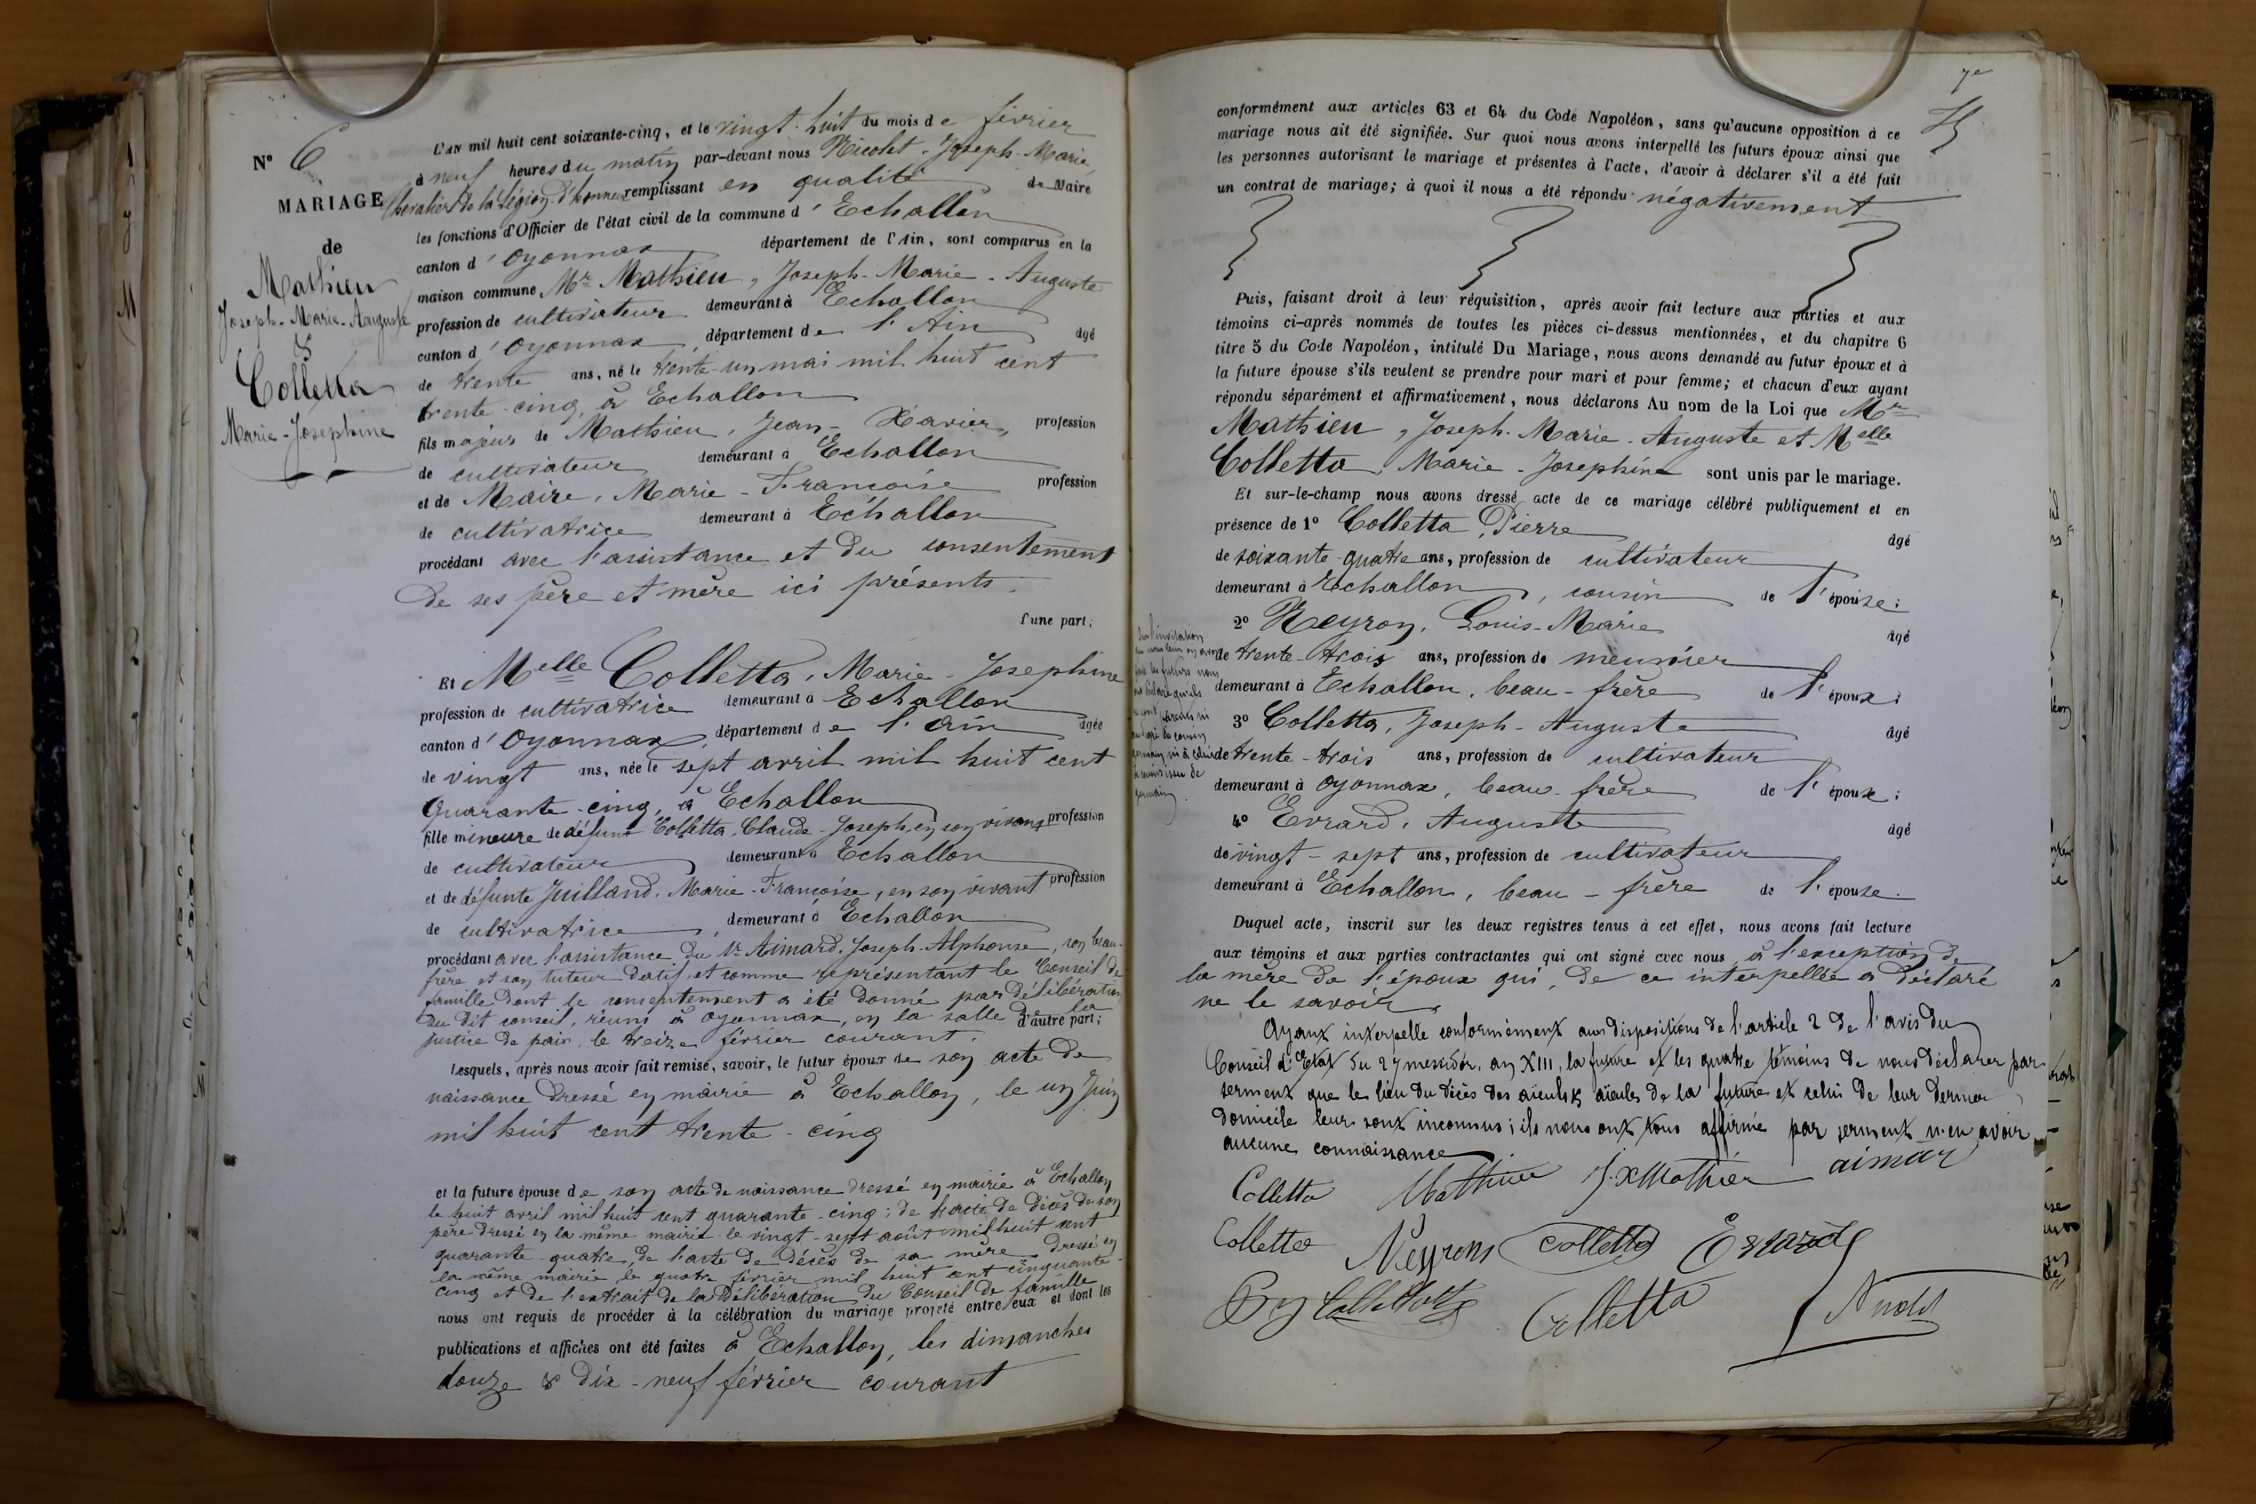 N° 6
MARIAGE
de
Mathieu
Joseph-Marie-Auguste
&
Colletta
Marie-Josephine
L'AN mil huit cent soixante-cinq, et le vingt-huit du mois de février
à neuf heures du matin par-devant nous Nicolet-Joseph-Marie
Chevalier de la Légion d'honneur remplissant en qualité de Maire
les fonctions d'Officier de l'état civil de la commune d'Echallon
canton d'Oyonnax département de l'Ain, sont comparus en la
maison commune Mr Mathieu, Joseph-Marie-Auguste
profession de cultivateur demeurant à Echallon
canton d'Oyonnax, département de l'Ain âgé
de trente ans, né le trente-un mai mil huit cent
trente-cinq, à Echallon
fils majeur de Mathieu, Jean-Xavier, profession
de cultivateur demeurant à Echallon
et de Maire, Marie-Françoise profession
de cultivatrice demeurant à Echallon
procédant avec l'assistance et du consentement
de ses père et mère ici présents.
d'une part;
Et Melle Colletta, Marie-Josephine
profession de cultivatrice demeurant à Echallon
canton d'Oyonnax, département de l'Ain âgée
de vingt ans, née le sept avril mil huit cent
quarante-cinq, à Echallon
fille mineure de défunt Colletta, Claude-Joseph, en son vivant profession
de cultivateur demeurant à Echallon
et de défunte Juilland, Marie-Françoise, en son vivant profession
de cultivatrice, demeurant à Echallon
procédant avec l'assistance du Sr Aimard, Joseph-Alphonse, son beau-
frère et son tuteur datif, et comme représentant le Conseil de
famille dont le consentement a été donné par délibération
du dit conseil, réuni à Oyonnax, en la salle de la
justice de paix, le treize février courant. d'autre part;
Lesquels, après nous avoir fait remise, savoir, le futur époux de son acte de
naissance dressé en mairie à Echallon, le un Juin
mil huit cent trente-cinq
et la future épouse de son acte de naissance dressé en mairie à Echallon
le huit avril mil huit cent quarante-cinq; de l'acte de décès de son
père dressé en la même mairie le vingt-sept août mil huit cent
quarante-quatre, de l'acte de décès de sa mère dressé en
la même mairie, le quatre février mil huit cent cinquante-
cinq et de l'extrait de la Délibération du Conseil de famille
nous ont requis de procéder à la célébration du mariage projeté entre eux et dont les
publications et affiches ont été faites à Echallon, les dimanches
douze & dix-neuf février courant
7e
conformément aux articles 63 et 64 du Code Napoléon, sans qu'aucune opposition à ce
mariage nous ait été signifiée. Sur quoi nous avons interpellé les futurs époux ainsi que
les personnes autorisant le mariage et présentes à l'acte, d'avoir à déclarer s'il a été fait
un contrat de mariage; à quoi il nous a été répondu négativement
Puis, faisant droit à leur réquisition, après avoir fait lecture aux parties et aux
témoins ci-après nommés de toutes les pièces ci-dessus mentionnées, et du chapitre 6
titre 5 du Code Napoléon, intitulé Du Mariage, nous avons demandé au futur époux et à
la future épouse s'ils veulent se prendre pour mari et pour femme; et chacun d'eux ayant
répondu séparément et affirmativement, nous déclarons Au nom de la Loi que Mr
Mathieu, Joseph-Marie-Auguste et Melle
Colletta, Marie-Josephine sont unis par le mariage.
Et sur-le-champ nous avons dressé acte de ce mariage célébré publiquement et en
présence de 1° Colletta, Pierre âgé
de soixante-quatre ans, profession de cultivateur
demeurant à Echallon, cousin de l'épouse;
2° Neyron, Louis-Marie âgé
de trente-trois ans, profession de meunier
demeurant à Echallon, beau-frère de l'époux;
3° Colletta, Joseph-Auguste âgé
de trente-trois ans, profession de cultivateur
demeurant à Oyonnax, beau-frère de l'époux;
4° Evrard, Auguste âgé
de vingt-sept ans, profession de cultivateur
demeurant à Echallon, beau-frère de l'épouse.
Duquel acte, inscrit sur les deux registres tenus à cet effet, nous avons fait lecture
aux témoins et aux parties contractantes qui ont signé avec nous, à l'exception de
la mère de l'époux qui, de ce interpellée a déclaré
ne le savoir.
Ayant interpellé conformément aux dispositions de l'article 2 de l'avis du
Conseil d'Etat du 27 messidor, an XIII, la future et les quatre témoins de nous déclarer par
serment que le lieu du décès des aïeuls & aïeules de la future et celui de leur dernier
domicile leur sont inconnus; ils nous ont tous affirmé par serment n'en avoir
aucune connaissance
Colletta Mathieu J.X Mathieu aimar
Colletta Neyrons Colletta Evrard
Colletta Nicolet